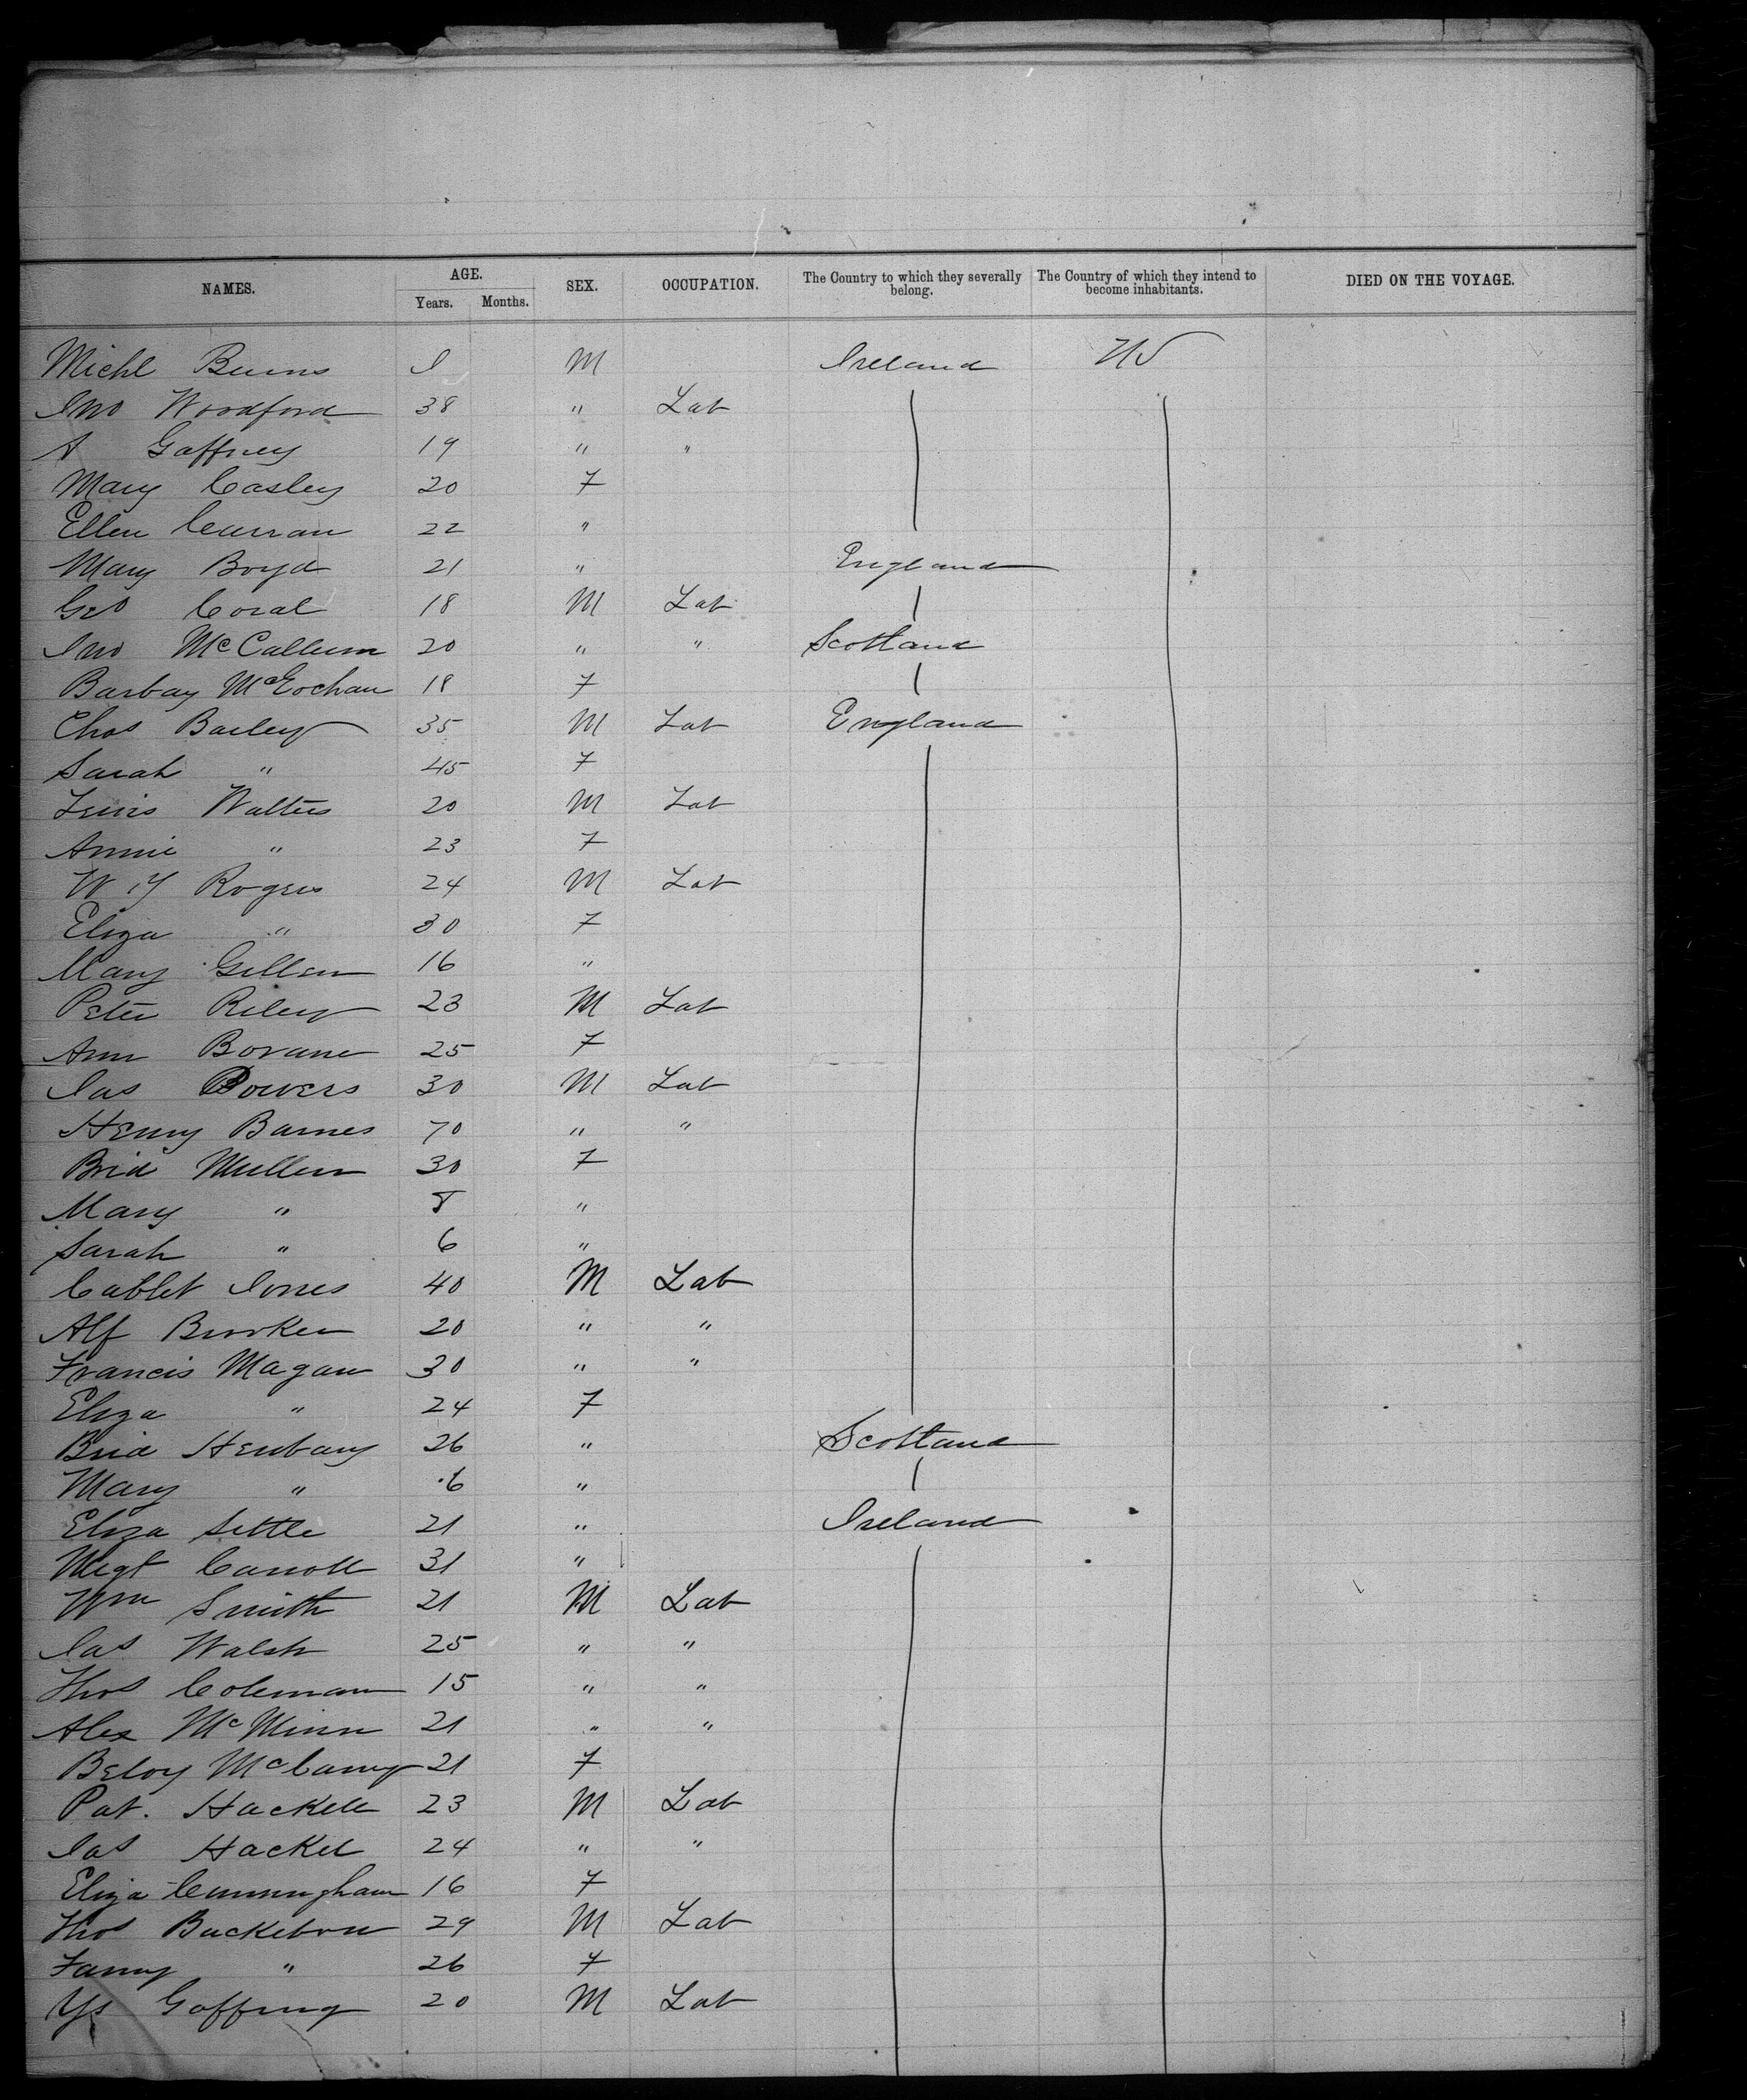 NAMES. AGE. SEX. OCCUPATION. The Country to which they severally belong. The Country of which they intend to become inhabitants. DIED ON THE VOYAGE.
Years. Months.
Michl Burns M Ireland US
Jno Woodford 38 " Lab
A Gaffney 19 " "
Mary Casley 20 F
Ellen Curran 22 "
Mary Boyd 21 " England
Geo Coral 18 M Lab
Jno McCallum 20 " " Scotland
Barbay McEochan 18 F
Chas Bailey 35 M Lab England
Sarah " 45 F
Lewis Walters 20 M Lab
Annie " 23 F
W Y Rogers 24 M Lab
Eliza " 30 F
Mary Gillen 16 "
Peter Riley 23 M Lab
Ann Bovane 25 F
Jas Powers 30 M Lab
Henry Barnes 70 " "
Brid Mullen 30 F
Mary " 8 "
Sarah " 6 "
Jones 40 M Lab
Alf Brooker 20 " "
Francis Magan 30 " "
Eliza " 24 F
Brid Henbany 26 " Scotland
Mary " 6 "
Eliza Settle 21 " Ireland
Megt Carroll 31 "
Wm Smith 21 M Lab
Jas Walsh 25 " "
Thos Coleman 15 " "
Alex McMinn 21 " "
Betsy 21 F
Pat. Hackett 23 M Lab
Jas Hacket 24 " "
Eliza Cunningham 16 F
Thos 29 M Lab
Fanny " 26 F
20 M Lab